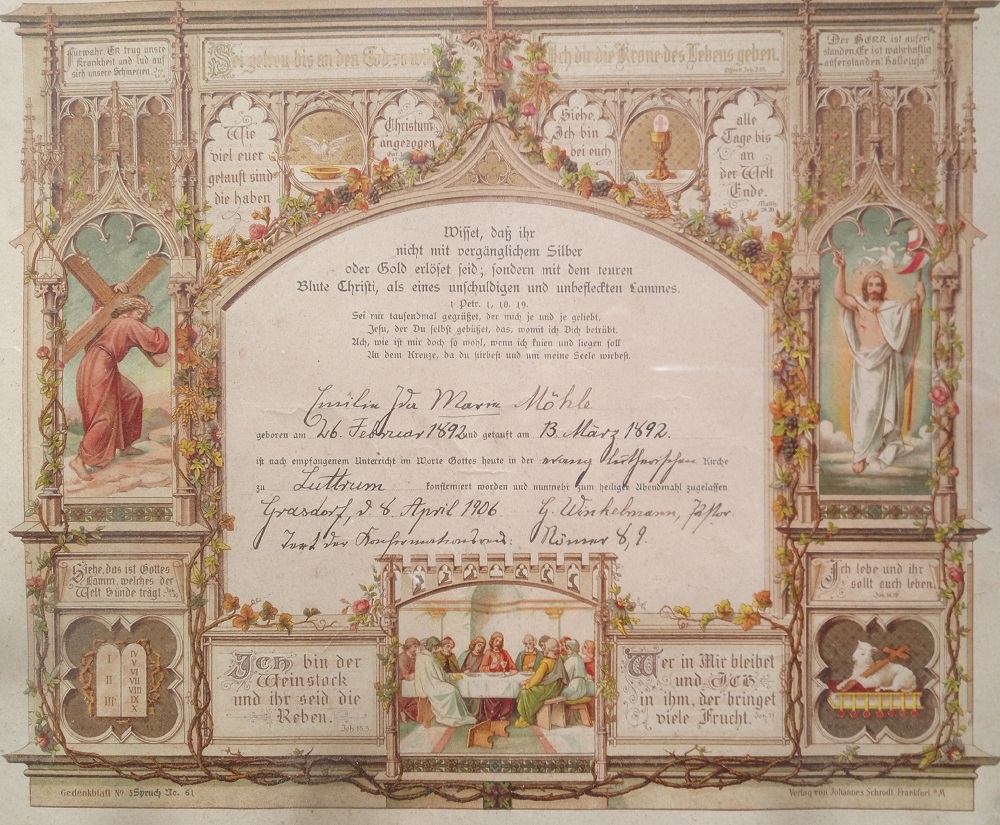 Fürwahr, ER trug unsre
Krankheit und lud auf
sich unsere Schmerzen.
Sei getreu bis an den Tod, so will
Ich dir die Krone des Lebens geben.
Der HERR ist aufer-
standen, Er ist wahrhaftig
auferstanden! Halleluja!
Wie
viel euer
getauft sind
die haben
Christum
angezogen
Siehe,
Ich bin
bei euch
alle
Tage bis
an
der Welt
Ende.
Matth. 28,20
Wisset, daß ihr
nicht mit vergänglichem Silber
oder Gold erlöset seid; sondern mit dem teuren
Blute Christi, als eines unschuldigen und unbefleckten Lammes.
1 Petr. 1, 18. 19.
Sei mir tausendmal gegrüßet, der mich je und je geliebt,
Jesu, der Du selbst gebüßet, das, womit ich Dich betrübt.
Ach, wie ist mir doch so wohl, wenn ich knien und liegen soll
An dem Kreuze, da du stirbest und um meine Seele wirbest.
Emilie Ida Marie Möhle
geboren am 26. Februar 1892 und getauft am 13. März 1892.
ist nach empfangenem Unterricht im Worte Gottes heute in der evang. lutherischen Kirche
zu Luttrum konfirmiert worden und nunmehr zum heiligen Abendmahl zugelassen
Grasdorf, d 8. April 1906. G. Winkelmann, Pastor.
Text der Konfirmationsrede: Römer 8, 9.
Siehe, das ist Gottes
Lamm, welches der
Welt Sünde trägt.
Ich lebe und ihr
sollt auch leben.
Joh. 14,19
I II III IV V VI VII VIII IX X
ICH bin der
Weinstock
und ihr seid die
Reben.
Joh. 15,5
Wer in Mir bleibet
und ICH
in ihm, der bringet
viele Frucht.
Gedenkblatt No. 5 Spruch No. 61
Verlag von Johannes Schrodt, Frankfurt a/M